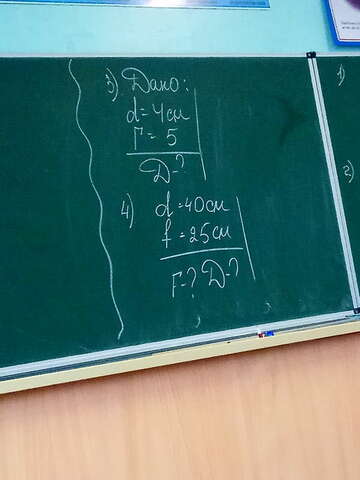 3) Дано:
d=4см
Г=5
D-?
4) d=40см
f=25см
Г-? D-?
1)
2)